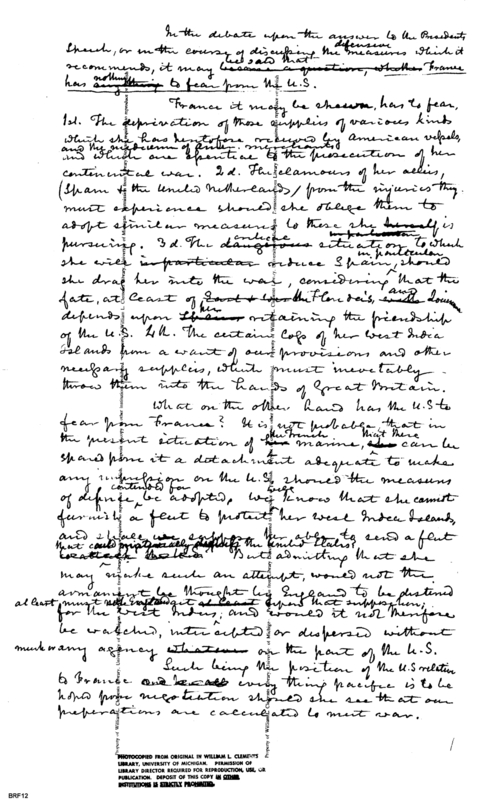 In the debate upon the answer to the Presidents
Speech, or in the course of discussing the defensive measures which it
recommends, it may be said that became a question, whether France
has nothing anything to fear from the U.S.
France it may be shewn, has to fear,
1st. The deprivation of those supplies of various kinds
which she has heretofore received by American vessels,
and the medium of merchants
and which are essential to the prosecution of her
continental war. 2d. The clamours of her allies,
(Spain & the United Netherlands) from the injuries they
must experience should she oblige them to
adopt similar measures to those she herself is
pursuing. 3d. The critical dangerous situation to which
she will in particular reduce Spain, in particular should
she drag her into the war, considering that the
fate, at least of the Floridas, and
depends upon her retaining the friendship
of the U.S. 4th. The certain loss of her West India
islands from a want of our provisions and other
necessary supplies, which must inevitably
throw them into the hands of Great Britain.
What on the other hand has the U.S to
fear from France? It is not probable that in
the present situation of the French marine, that there can be
spared from it a detachment adequate to make
any impression on the U.S. should the measures
of defence contended for be adopted. We know that she cannot
furnish a fleet to protect her West India Islands,
and shall we suppose her able to send a fleet
that the United States?
But admitting that she
may make such an attempt, would not the
armament be thought by England to be destined
at least must upon that supposition,
for the West Indies, and would it not therefore
be watched, intercepted or dispersed without
much or any agency whatever on the part of the U.S.
Such being the position of the U.S relative
to France every thing pacific is to be
hoped from negotiation should she see that our
preparations are calculated to meet war.
1
PHOTOCOPIED FROM ORIGINAL IN WILLIAM L. CLEMENTS
LIBRARY, UNIVERSITY OF MICHIGAN. PERMISSION OF
LIBRARY DIRECTOR REQUIRED FOR REPRODUCTION, USE, OR
PUBLICATION. DEPOSIT OF THIS COPY IN OTHER
INSTITUTIONS IS STRICTLY PROHIBITED.
BRF12